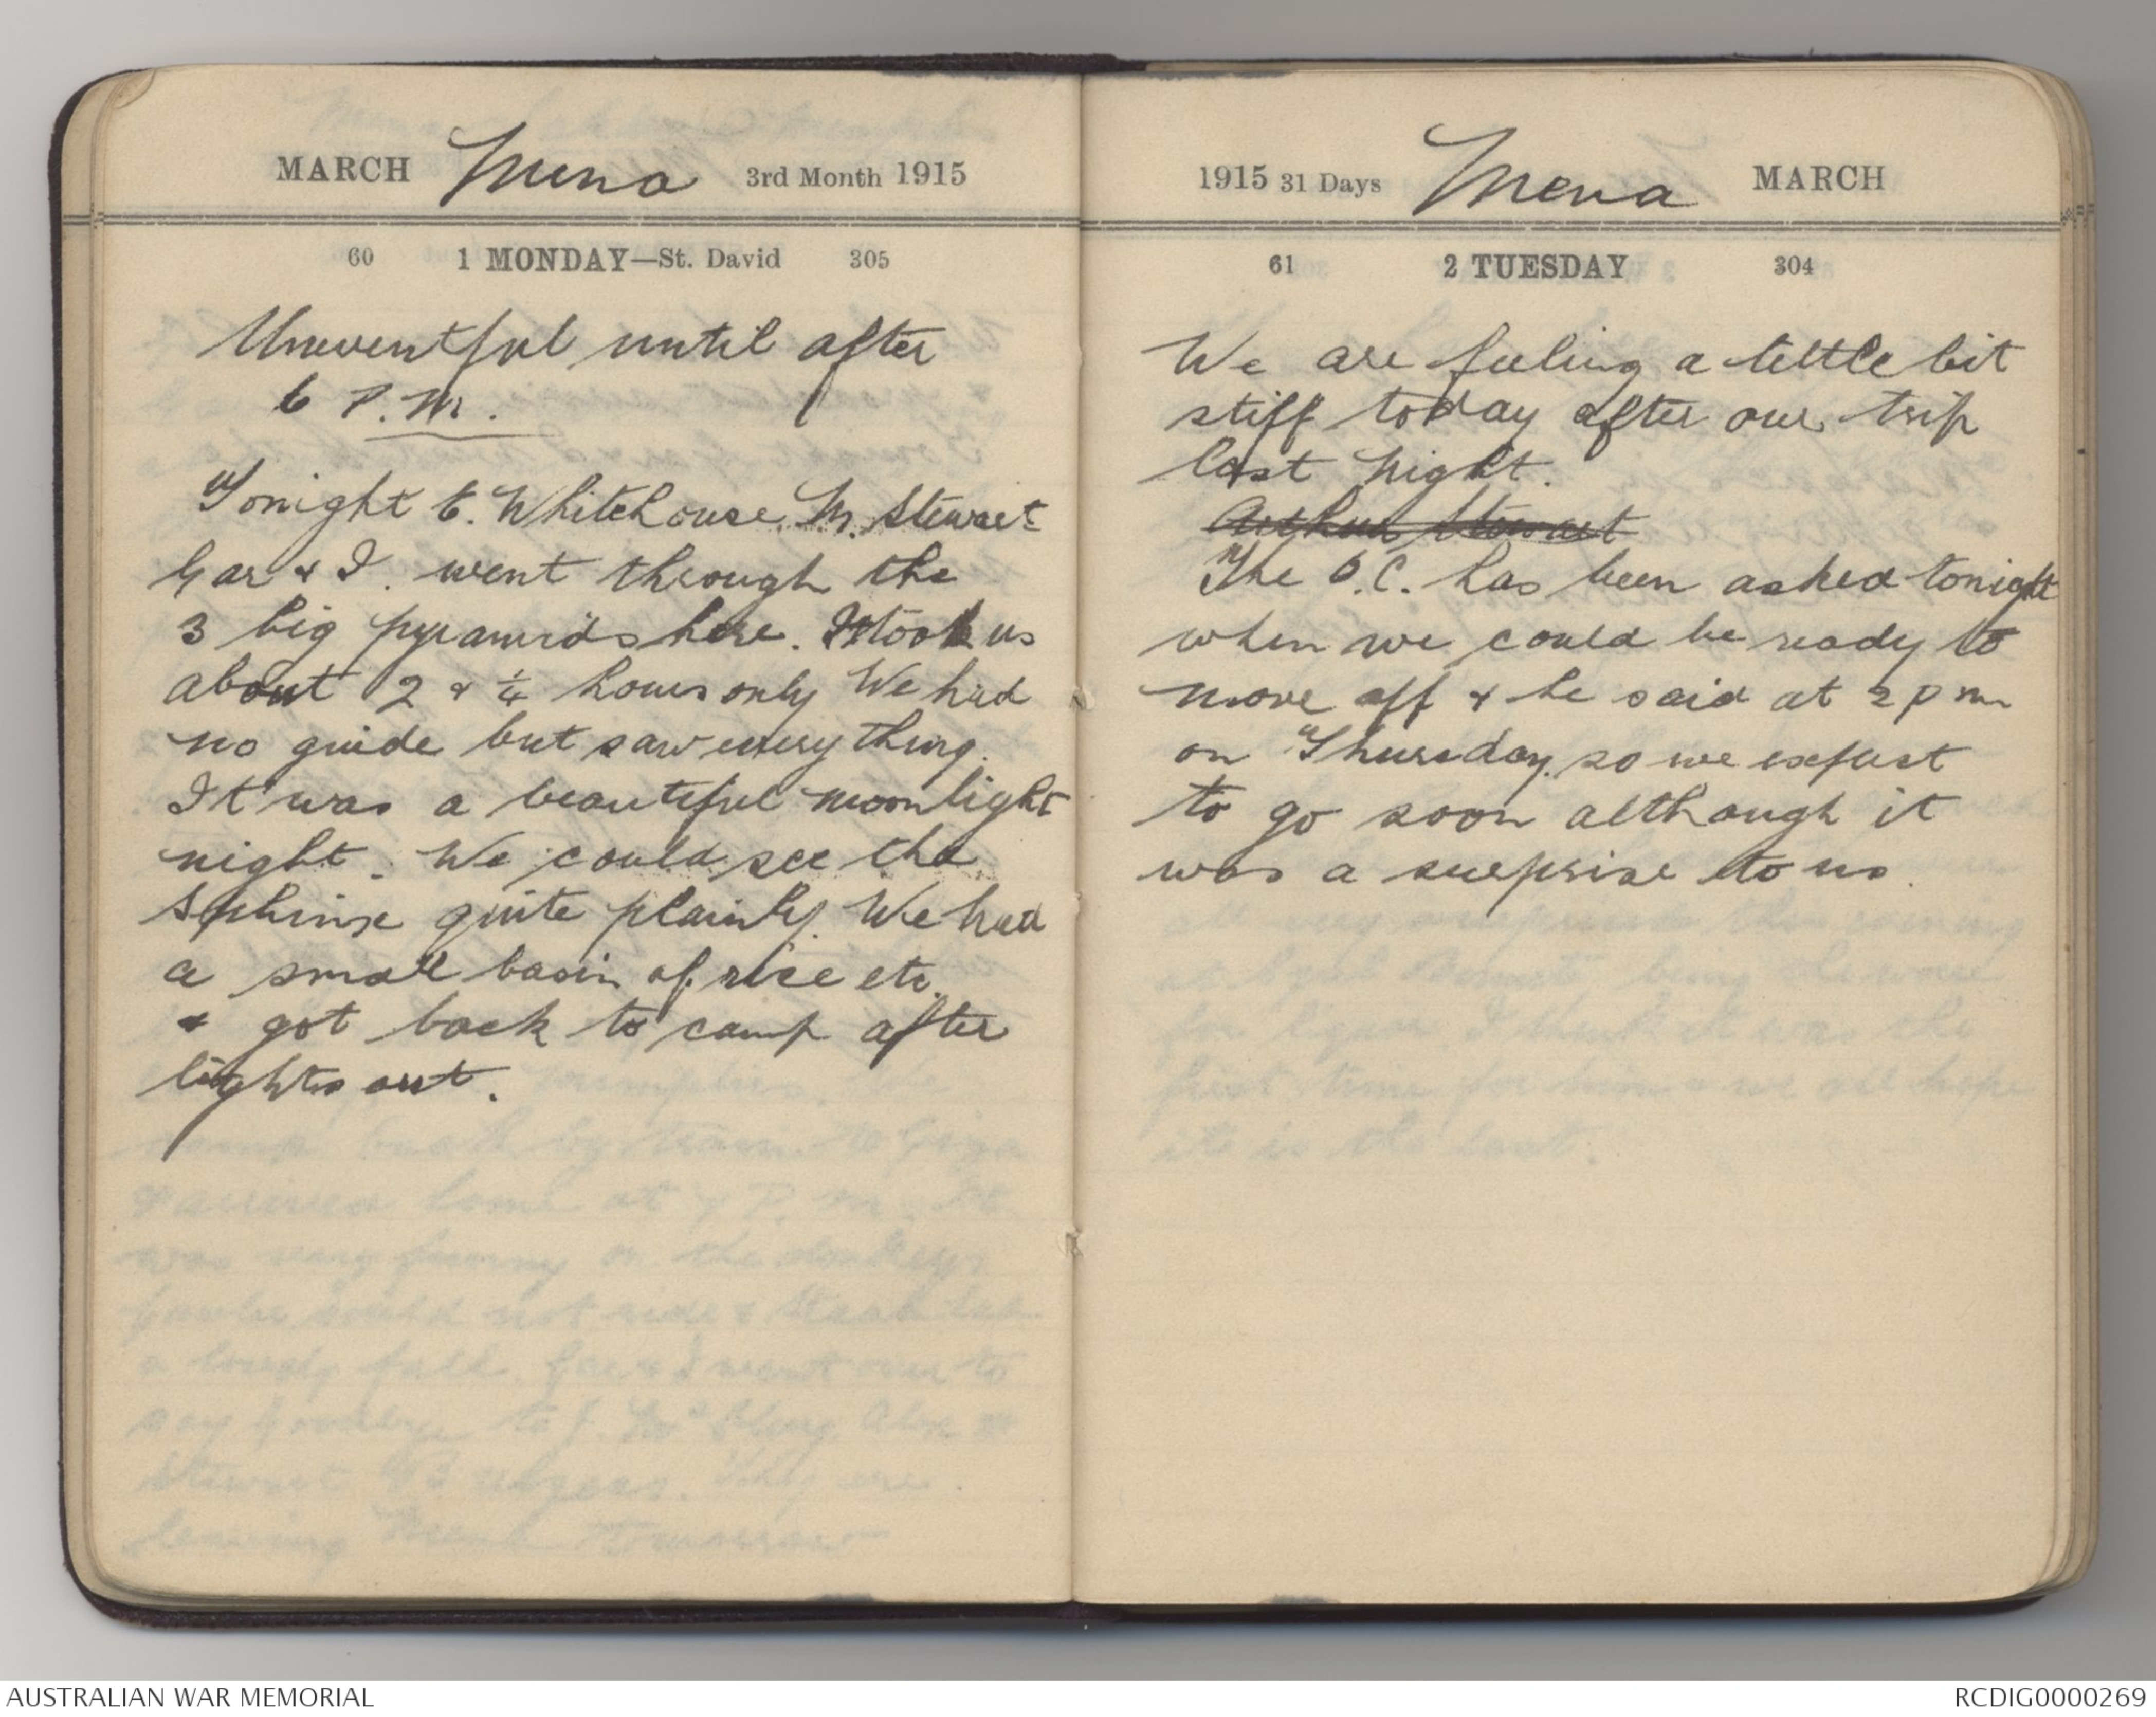 MARCH Mena 3rd Month 1915
60 1 MONDAY—St. David 305
Uneventful until after
6 P.M.
Tonight E. Whitehouse, M. Stewart
Gar & I. went through the
3 big pyramids here. It took us
about 2 & ¼ hours only We had
no guide but saw every thing.
It was a beautiful moonlight
night. We could see the
Sphinx quite plainly. We had
a small basin of rice etc.
& got back to camp after
lights out.
1915 31 Days Mena MARCH
61 2 TUESDAY 304
We are feeling a little bit
stiff today after our trip
last night.
Arthur Stewart
The O.C. has been asked tonight
when we could be ready to
move off & he said at 2 pm
on Thursday. so we expect
to go soon although it
was a surprise to us.
AUSTRALIAN WAR MEMORIAL
RCDIG0000269